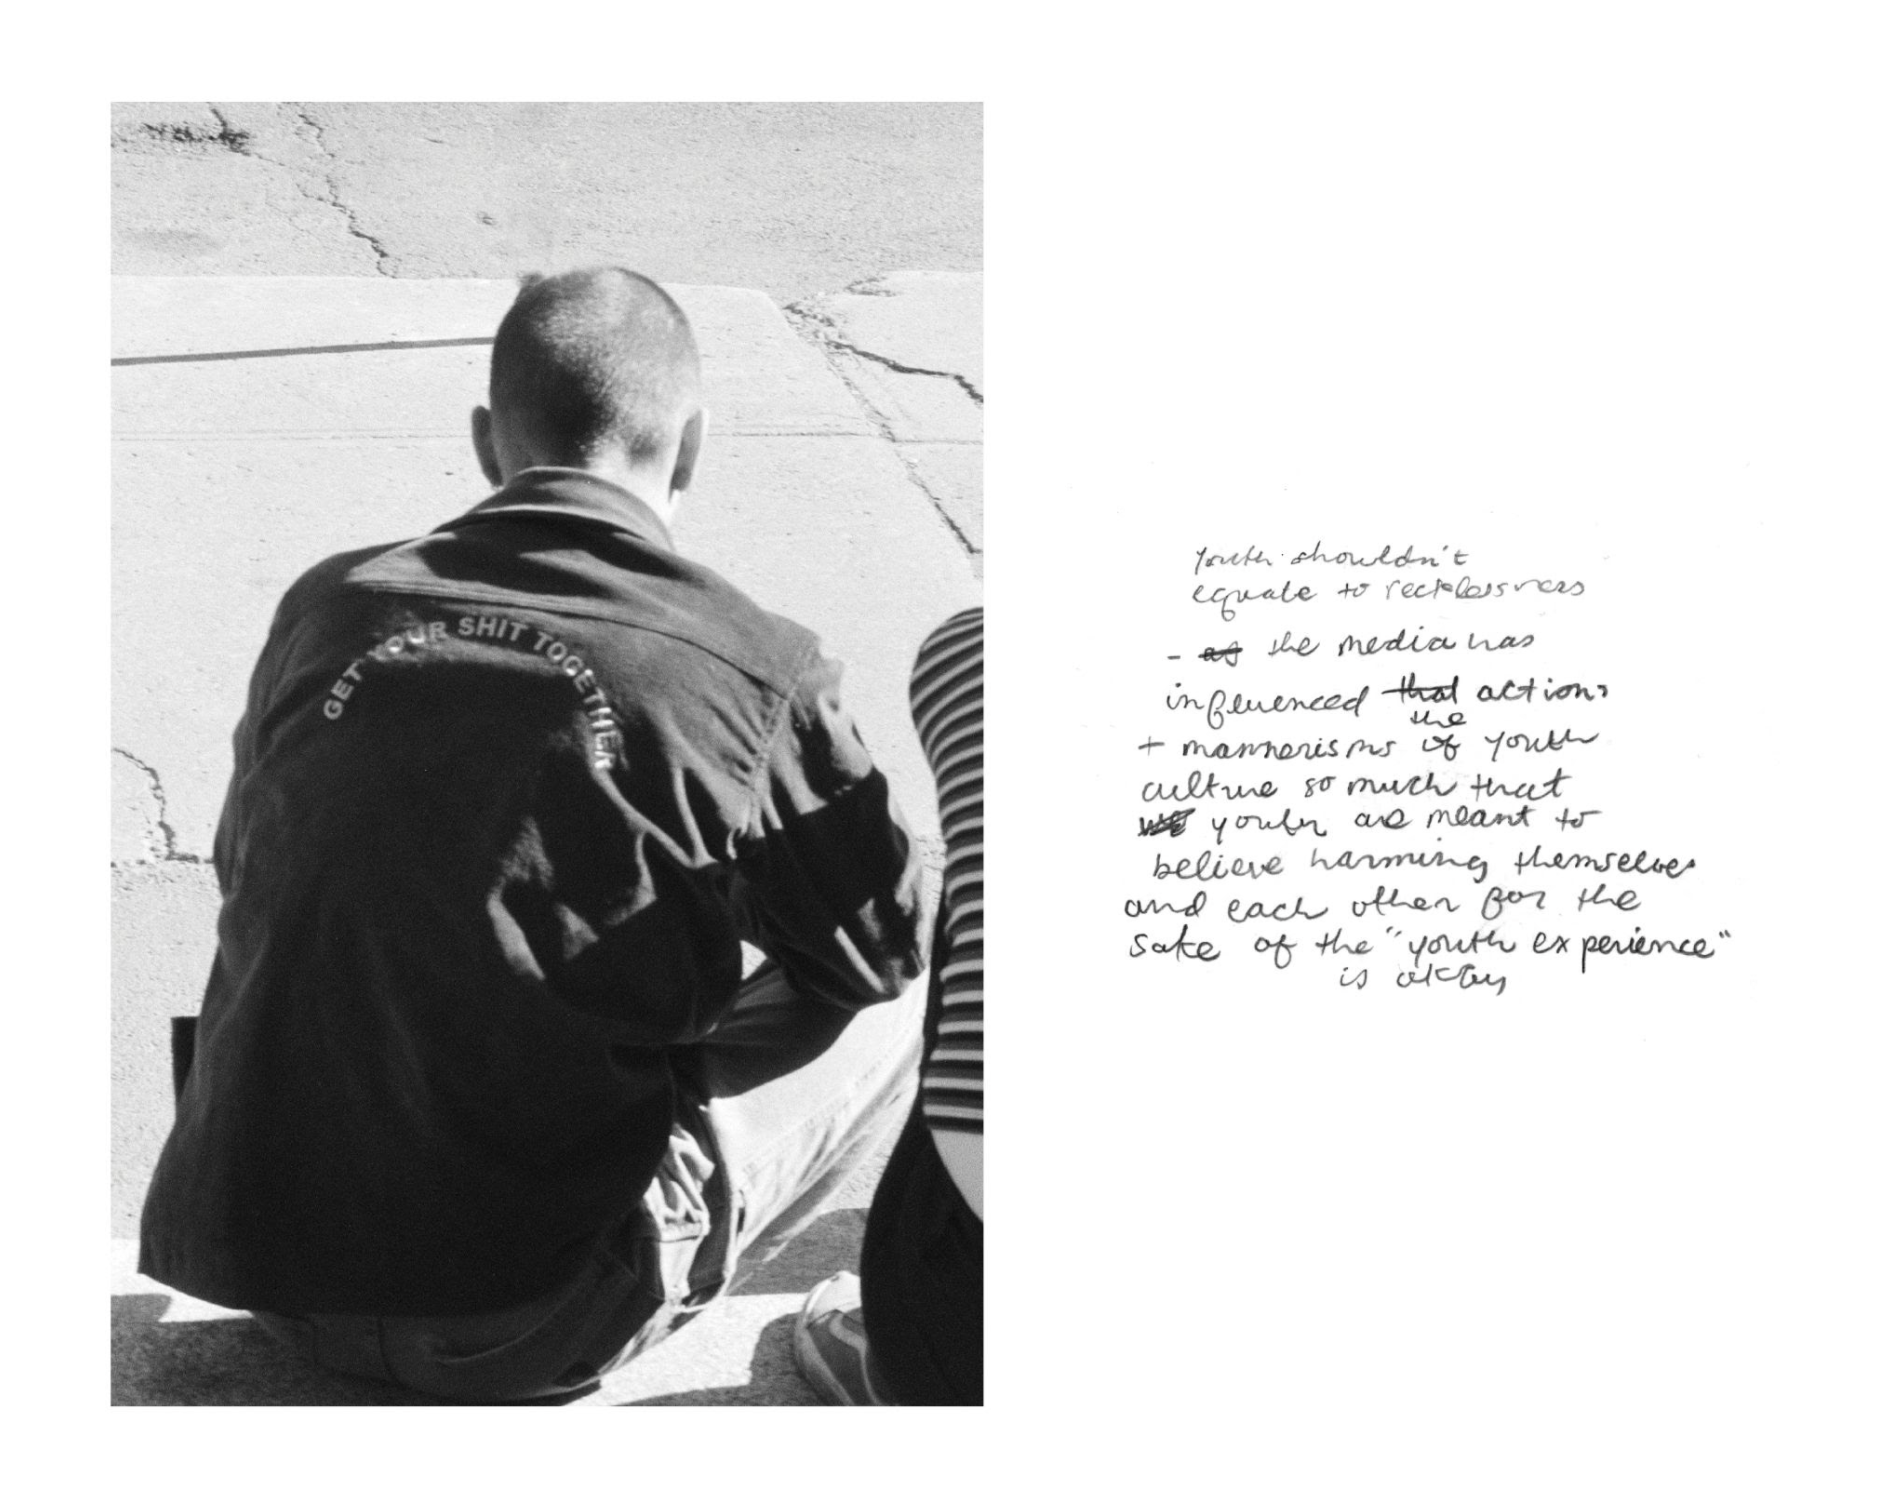 GET YOUR SHIT TOGETHER
Youth shouldn't
equate to recklessness
- as the media has
influenced that actions
the
+ mannerisms of youth
culture so much that
we youth are meant to
believe harming themselves
and each other for the
sake of the "youth experience"
is okay